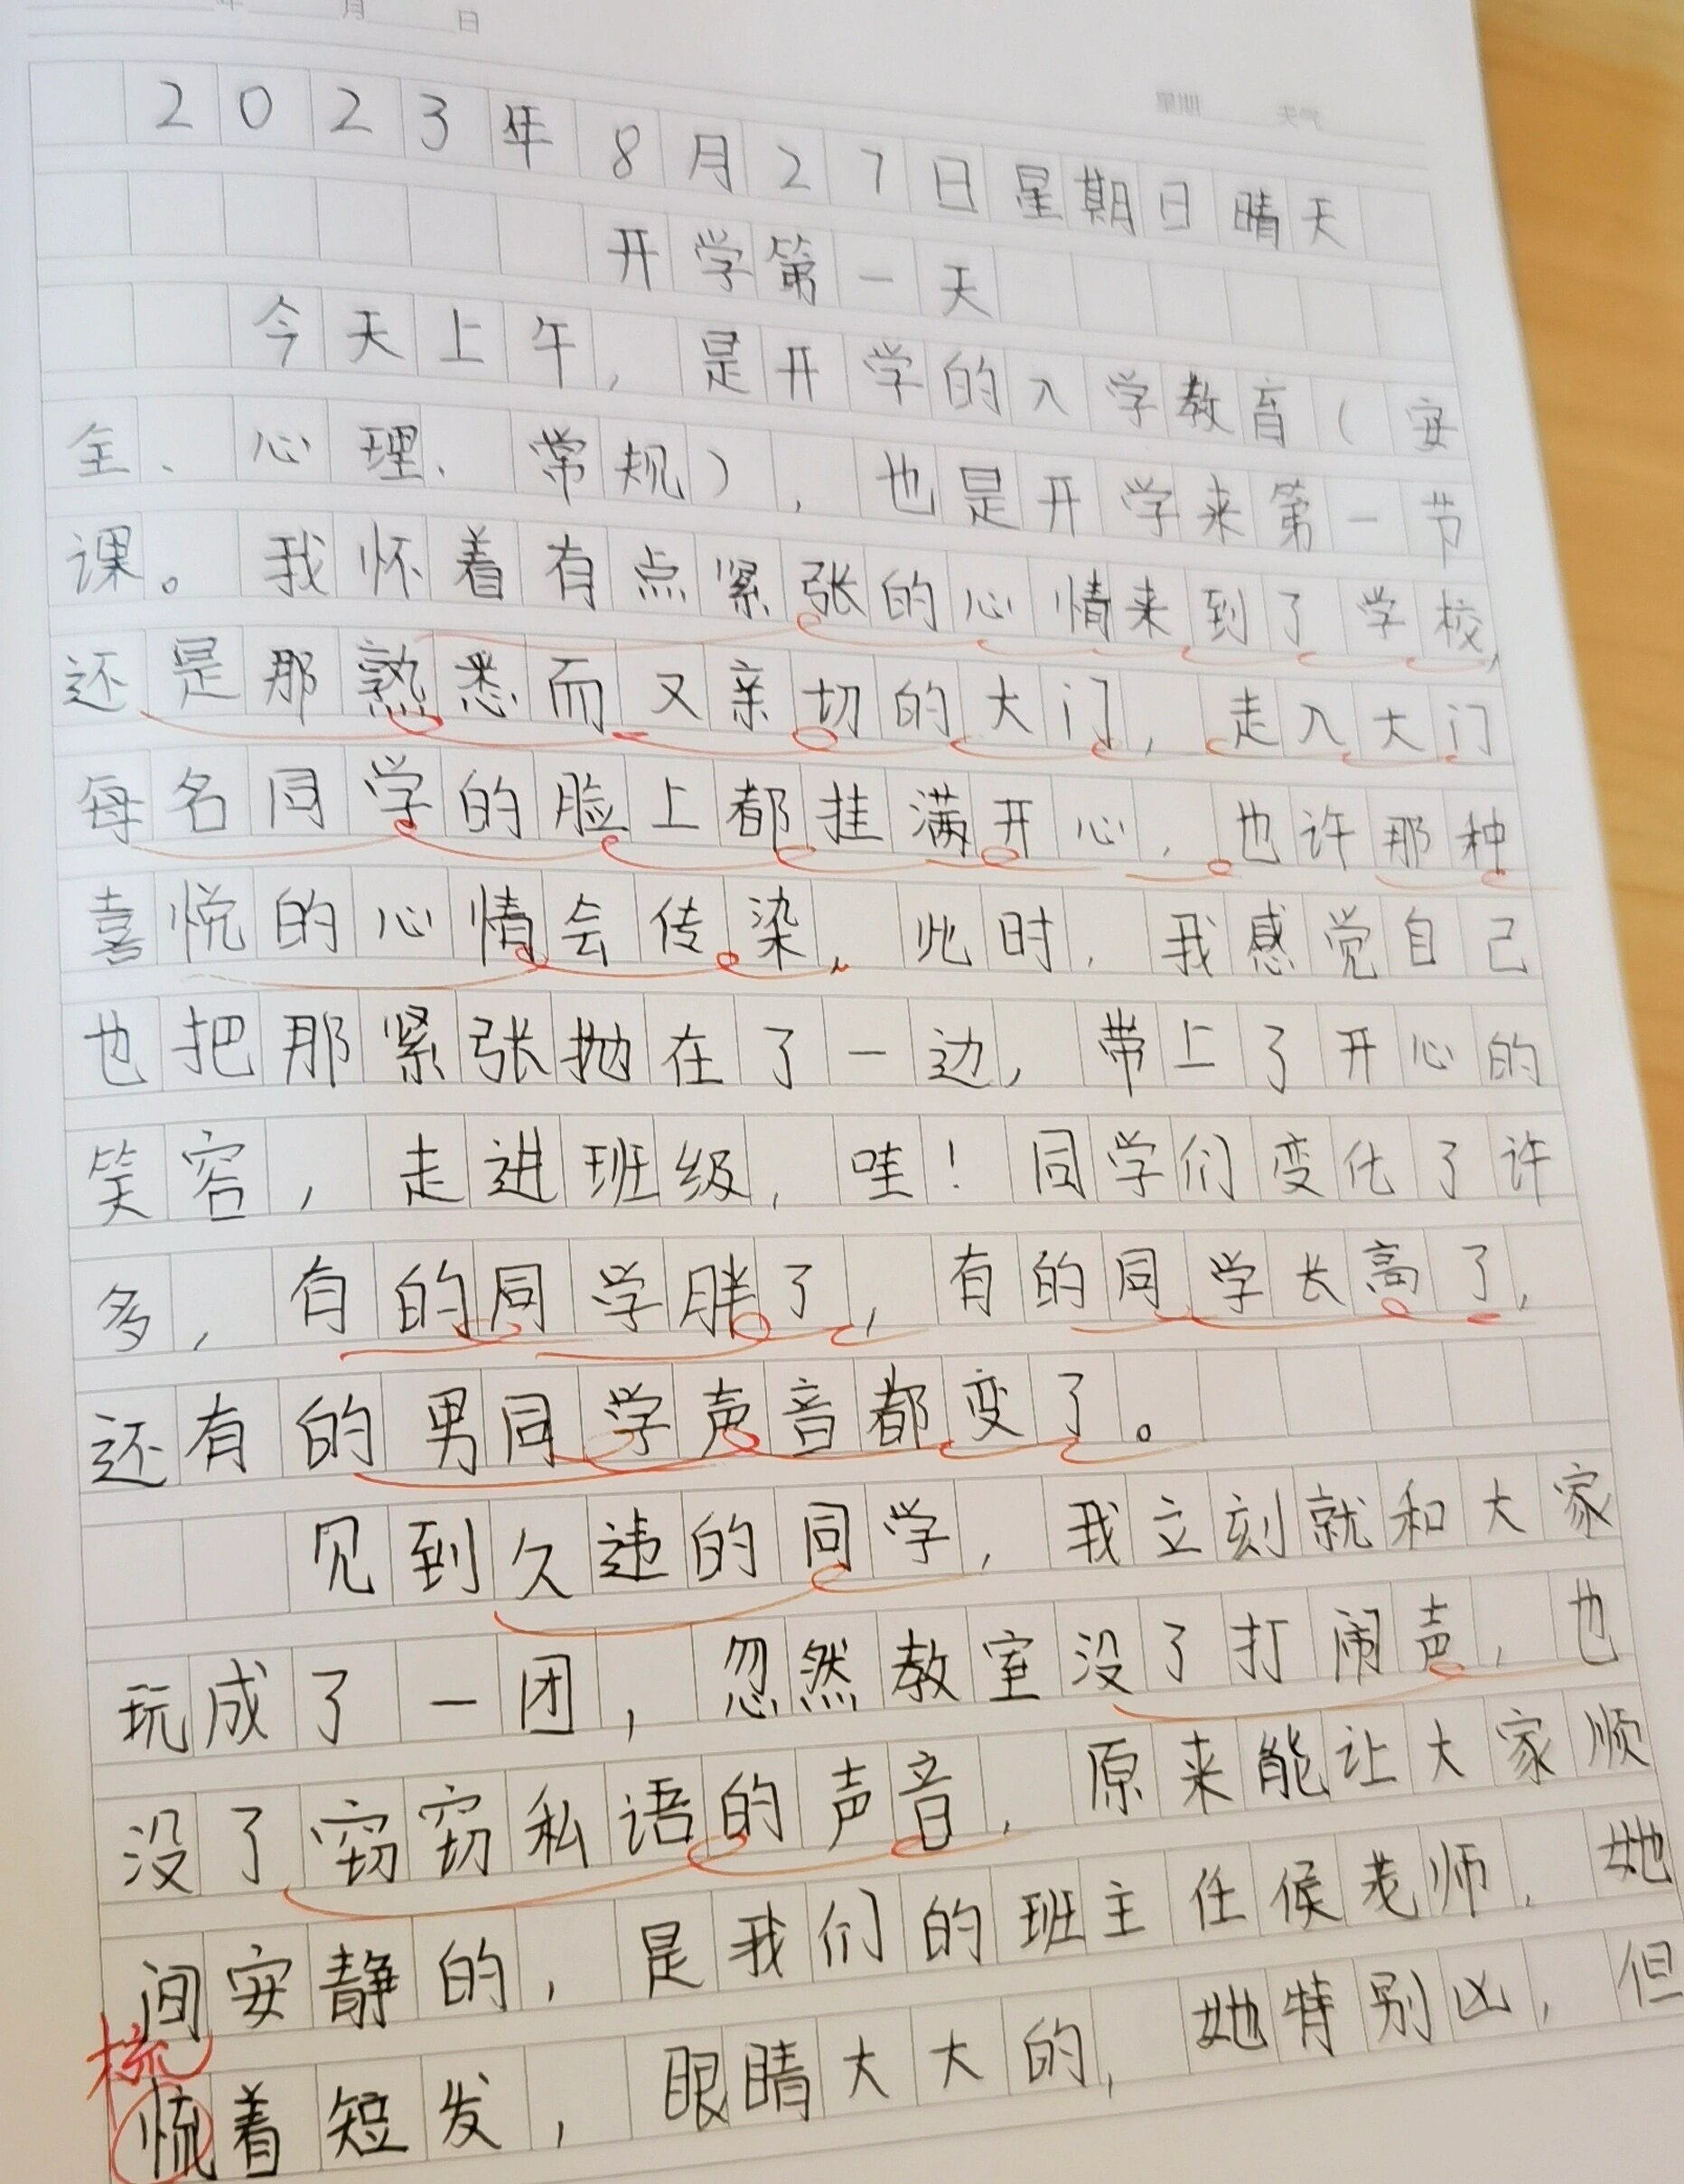 年 月 日
星期 天气
2023年8月27日星期日晴天
开学第一天
今天上午,是开学的入学教育(安
全、心理、常规),也是开学来第一节
课。我怀着有点紧张的心情来到了学校,
还是那熟悉而又亲切的大门,走入大门
每名同学的脸上都挂满开心,也许那种
喜悦的心情会传染,此时,我感觉自己
也把那紧张抛在了一边,带上了开心的
笑容,走进班级,哇!同学们变化了许
多,有的同学胖了,有的同学长高了,
还有的男同学声音都变了。
见到久违的同学,我立刻就和大家
玩成了一团,忽然教室没了打闹声,也
没了窃窃私语的声音,原来能让大家顺
间安静的,是我们的班主任侯老师,她
梳
着短发,眼睛大大的,她特别凶,但